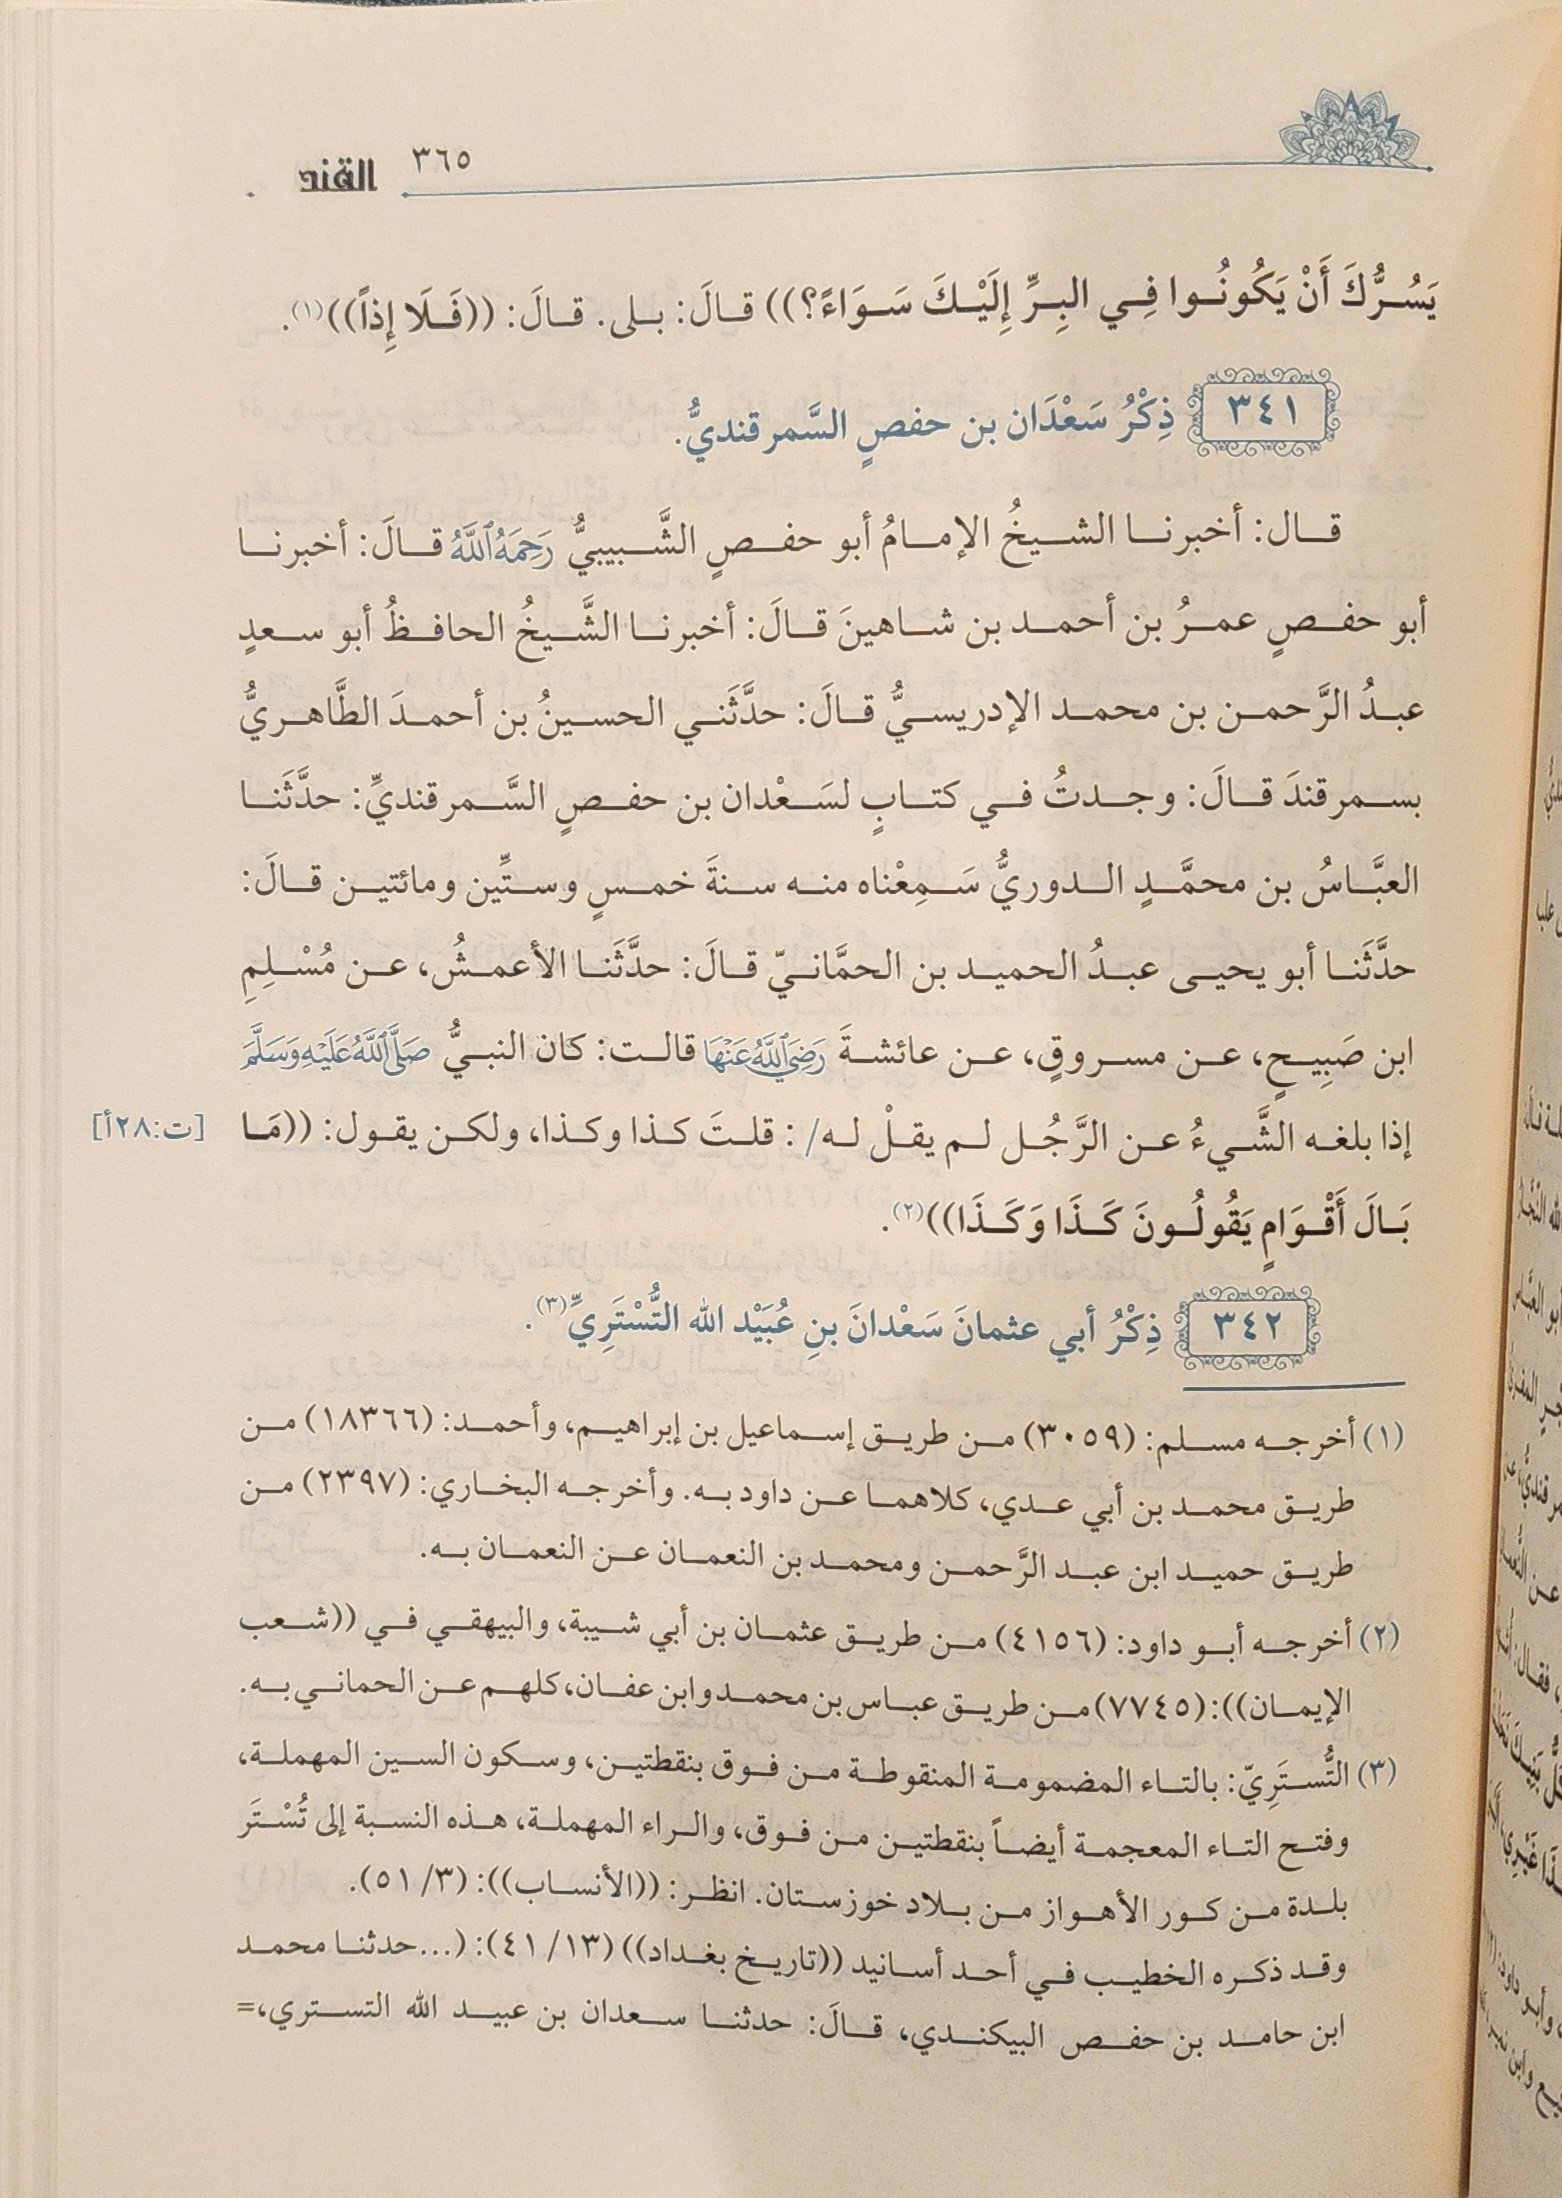 ٣٦٥ القند
يَسُرُّكَ أَنْ يَكُونُوا فِي البِرِّ إِلَيْكَ سَوَاءً؟)) قالَ: بلى. قالَ: ((فَلَا إِذاً))(١).
٣٤١ ذِكْرُ سَعْدَان بن حفصٍ السَّمرقنديُّ.
قال: أخبرنا الشيخُ الإمامُ أبو حفصٍ الشَّبيبيُّ رَحِمَهُ ٱللَّهُ قالَ: أخبرنا
أبو حفصٍ عمرُ بن أحمد بن شاهينَ قالَ: أخبرنا الشَّيخُ الحافظُ أبو سعدٍ
عبدُ الرَّحمن بن محمد الإدريسيُّ قالَ: حدَّثَني الحسينُ بن أحمدَ الطَّاهريُّ
بسمرقندَ قالَ: وجدتُ في كتابٍ لسَعْدان بن حفصٍ السَّمرقنديِّ: حدَّثَنا
العبَّاسُ بن محمَّدٍ الدوريُّ سَمِعْناه منه سنةَ خمسٍ وستِّين ومائتين قالَ:
حدَّثَنا أبو يحيى عبدُ الحميد بن الحمَّانيّ قالَ: حدَّثَنا الأعمشُ، عن مُسْلِمِ
ابن صَبِيحٍ، عن مسروقٍ، عن عائشةَ رَضِيَ ٱللَّهُ عَنْهَا قالت: كان النبيُّ صَلَّى ٱللَّهُ عَلَيْهِ وَسَلَّمَ
إذا بلغه الشَّيءُ عن الرَّجُل لم يقلْ له/ : قلتَ كذا وكذا، ولكن يقول: ((مَا [ت:٢٨أ]
بَالَ أَقْوَامٍ يَقُولُونَ كَذَا وَكَذَا))(٢).
٣٤٢ ذِكْرُ أبي عثمانَ سَعْدانَ بنِ عُبَيْد الله التُّسْتَرِيِّ(٣).
(١) أخرجه مسلم: (٣٠٥٩) من طريق إسماعيل بن إبراهيم، وأحمد: (١٨٣٦٦) من
طريق محمد بن أبي عدي، كلاهما عن داود به. وأخرجه البخاري: (٢٣٩٧) من
طريق حميد ابن عبد الرَّحمن ومحمد بن النعمان عن النعمان به.
(٢) أخرجه أبو داود: (٤١٥٦) من طريق عثمان بن أبي شيبة، والبيهقي في ((شعب
الإيمان)): (٧٧٤٥) من طريق عباس بن محمد وابن عفان، كلهم عن الحماني به.
(٣) التُّستَرِيّ: بالتاء المضمومة المنقوطة من فوق بنقطتين، وسكون السين المهملة،
وفتح التاء المعجمة أيضاً بنقطتين من فوق، والراء المهملة، هذه النسبة إلى تُسْتَر
بلدة من كور الأهواز من بلاد خوزستان. انظر: ((الأنساب)): (٣/ ٥١).
وقد ذكره الخطيب في أحد أسانيد ((تاريخ بغداد)) (١٣/ ٤١): (...حدثنا محمد
ابن حامد بن حفص البيكندي، قالَ: حدثنا سعدان بن عبيد الله التستري،=